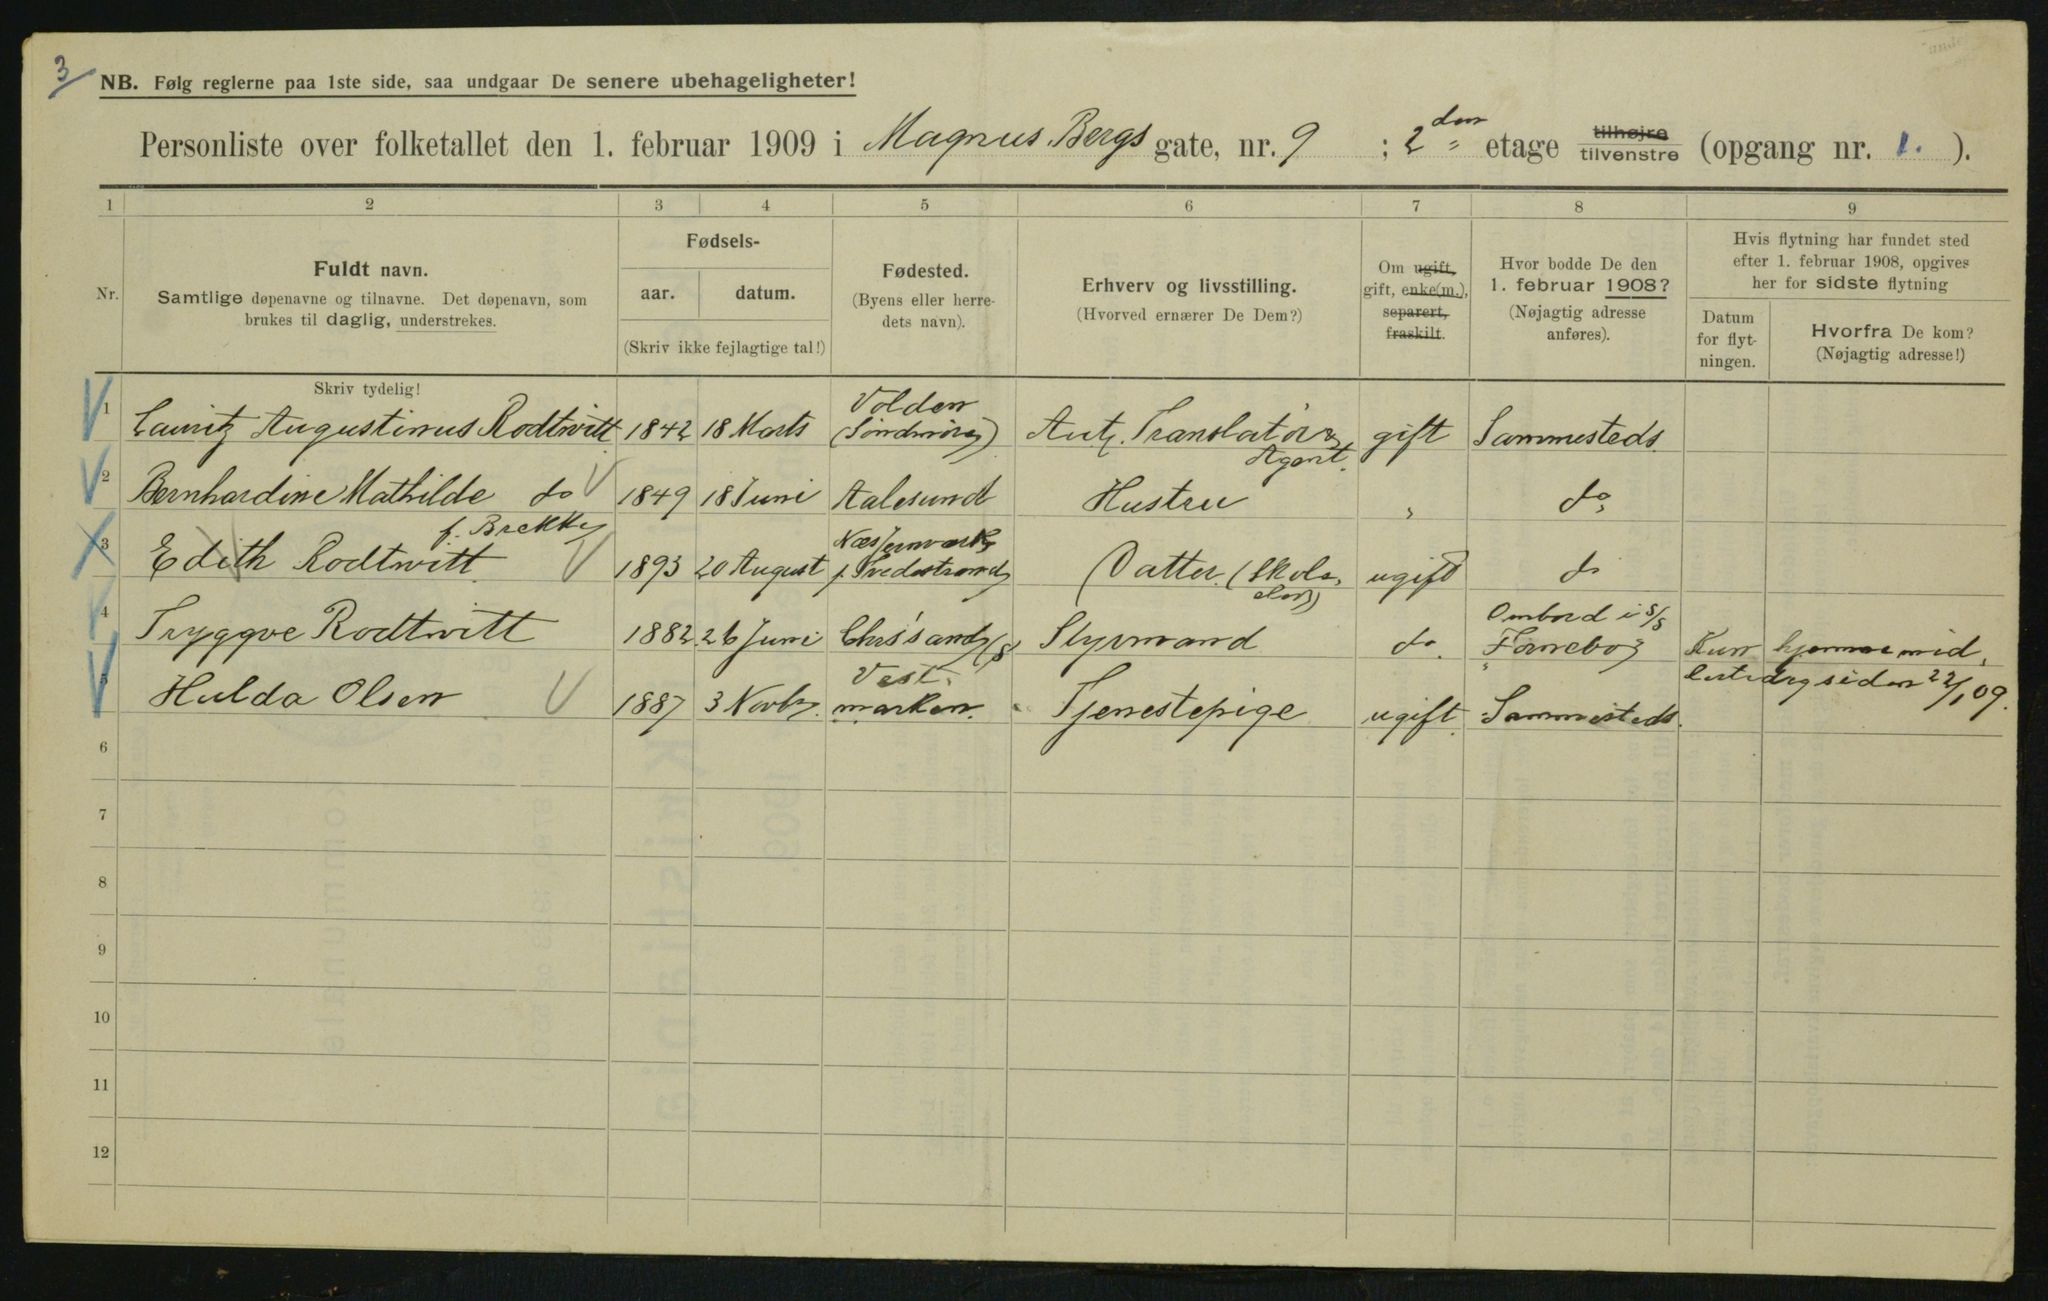 3
NB. Følg reglerne paa 1ste side, saa undgaar De senere ubehageligheter!
Personliste over folketallet den 1. februar 1909 i Magnus Bergs gate, nr. 9 ; 2den etage tilhøjre tilvenstre (opgang nr. 1. ).
1 2 3 4 5 6 7 8 9
Nr.
Fuldt navn.
Samtlige døpenavne og tilnavne. Det døpenavn, som
brukes til daglig, understrekes.
Fødsels-
aar. datum.
(Skriv ikke fejlagtige tal!)
Fødested.
(Byens eller herre-
dets navn).
Erhverv og livsstilling.
(Hvorved ernærer De Dem?)
Om ugift,
gift, enke(m.),
separert,
fraskilt.
Hvor bodde De den
1. februar 1908?
(Nøjagtig adresse
anføres).
Hvis flytning har fundet sted
efter 1. februar 1908, opgives
her for sidste flytning
Datum
for flyt-
ningen.
Hvorfra De kom?
(Nøjagtig adresse!)
Skriv tydelig!
1 Lauritz Augustinus Rodtwitt 1842 18 Marts Volden (Søndmøre) Aut. Translatør & Agent. gift Sammesteds.
2 Bernhardine Mathilde do f. Brekke 1849 18 Juni Aalesund Hustru " do
3 Edith Rodtwitt 1893 20 August Næs Jernværk p. Tvedestrand Datter (Skole- elev) ugift do
4 Tryggve Rodtwitt 1882 26 Juni Chrs'sand S Styrmand do. Ombord i S/S Fornebo Kun hjemme mid-
lertidig siden 22/1 09.
5 Hulda Olsen 1887 3 Novbr. Vestmarken. Tjenestepige ugift Sammesteds.
6
7
8
9
10
11
12